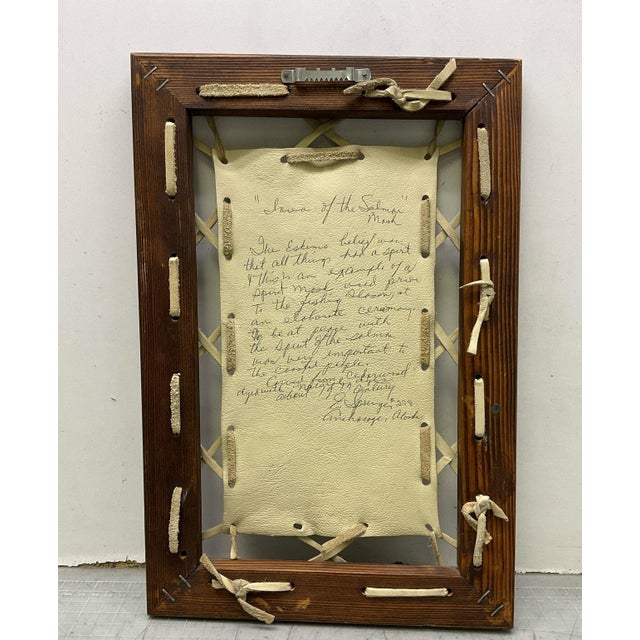 "Inua of the Salmon"
Mask
The Eskimo belief was
that all things had a spirit
& this is an example of a
Spirit Mask used prior
to the fishing season, at
an elaborate ceremony.
To be at peace with
the spirit of the salmon
was very important to
the coastal people.
Carved from Cedarwood
dyed with
about Century
#299
Anchorage, Alaska